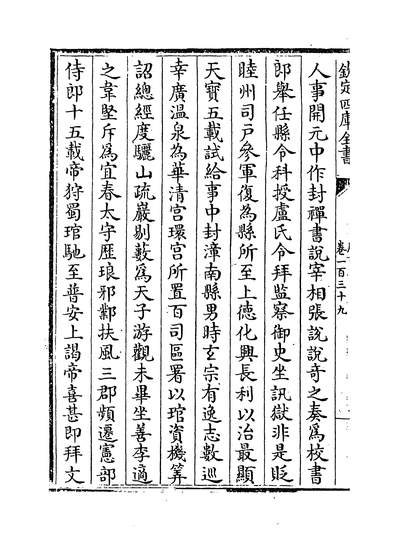 欽定四庫全書
卷一百三十九
人事開元中作封禪書說宰相張說說奇之奏為校書
郎舉任縣令科授盧氏令拜監察御史坐訊獄非是貶
睦州司戶參軍復為縣所至上德化興長利以治最顯
天寶五載試給事中封漳南縣男時玄宗有逸志數巡
幸廣温泉為華清宫環宫所置百司區署以琯資機筭
詔總經度驪山疏巖剔藪為天子游觀未畢坐善李適
之韋堅斥為宜春太守歴琅邪鄴扶風三郡頻遷憲部
侍郎十五載帝狩蜀琯馳至普安上謁帝喜甚即拜文